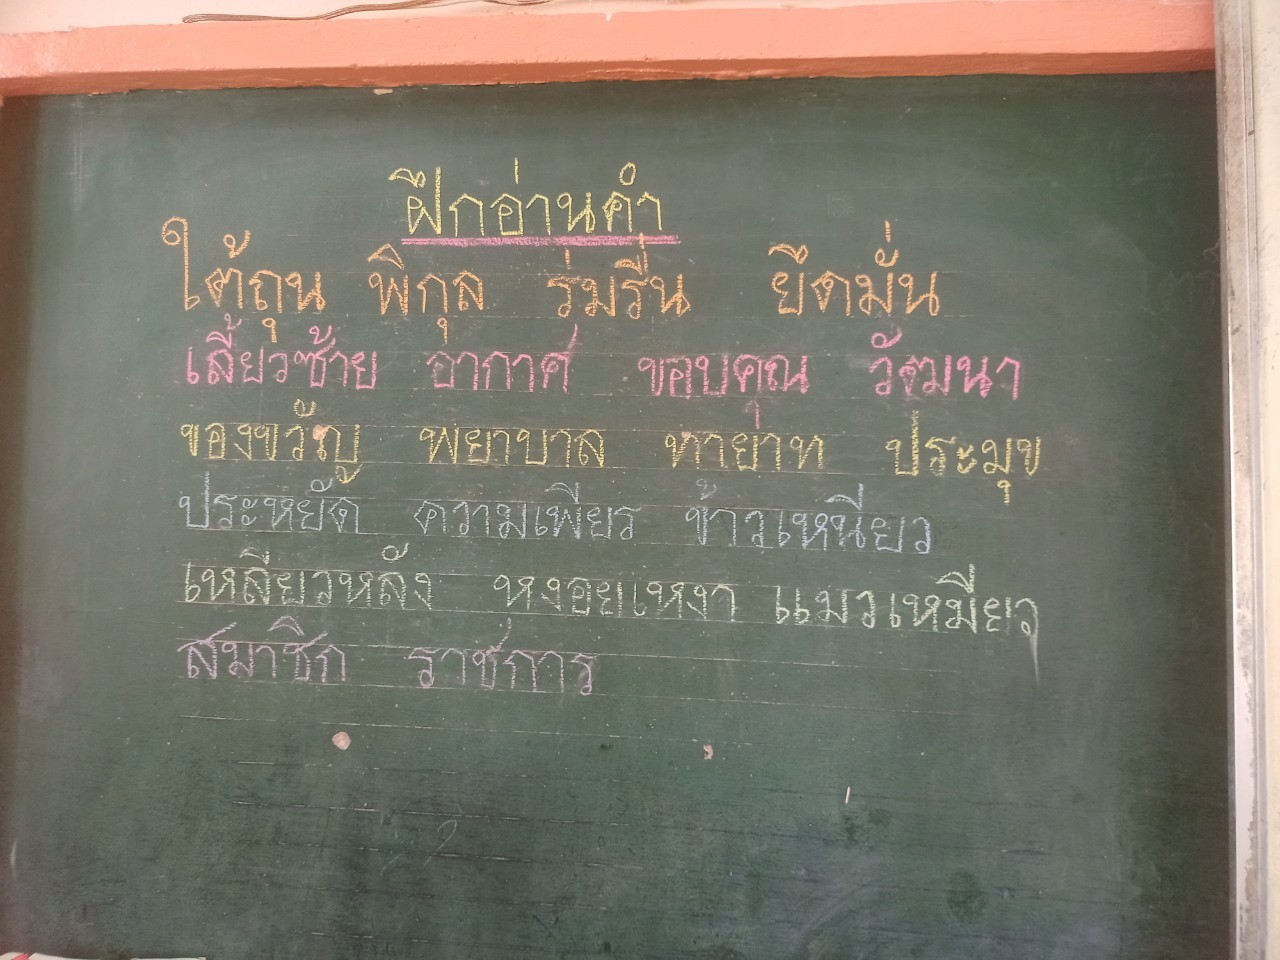 ฝึกอ่านคำ
ใต้ถุน พิกุล ร่มรื่น ยึดมั่น
เลี้ยวซ้าย อากาศ ขอบคุณ วัฒนา
ของขวัญ พยาบาล ทายาท ประมุข
ประหยัด ความเพียร ข้าวเหนียว
เหลียวหลัง หงอยเหงา แมวเหมียว
สมาชิก ราชการ